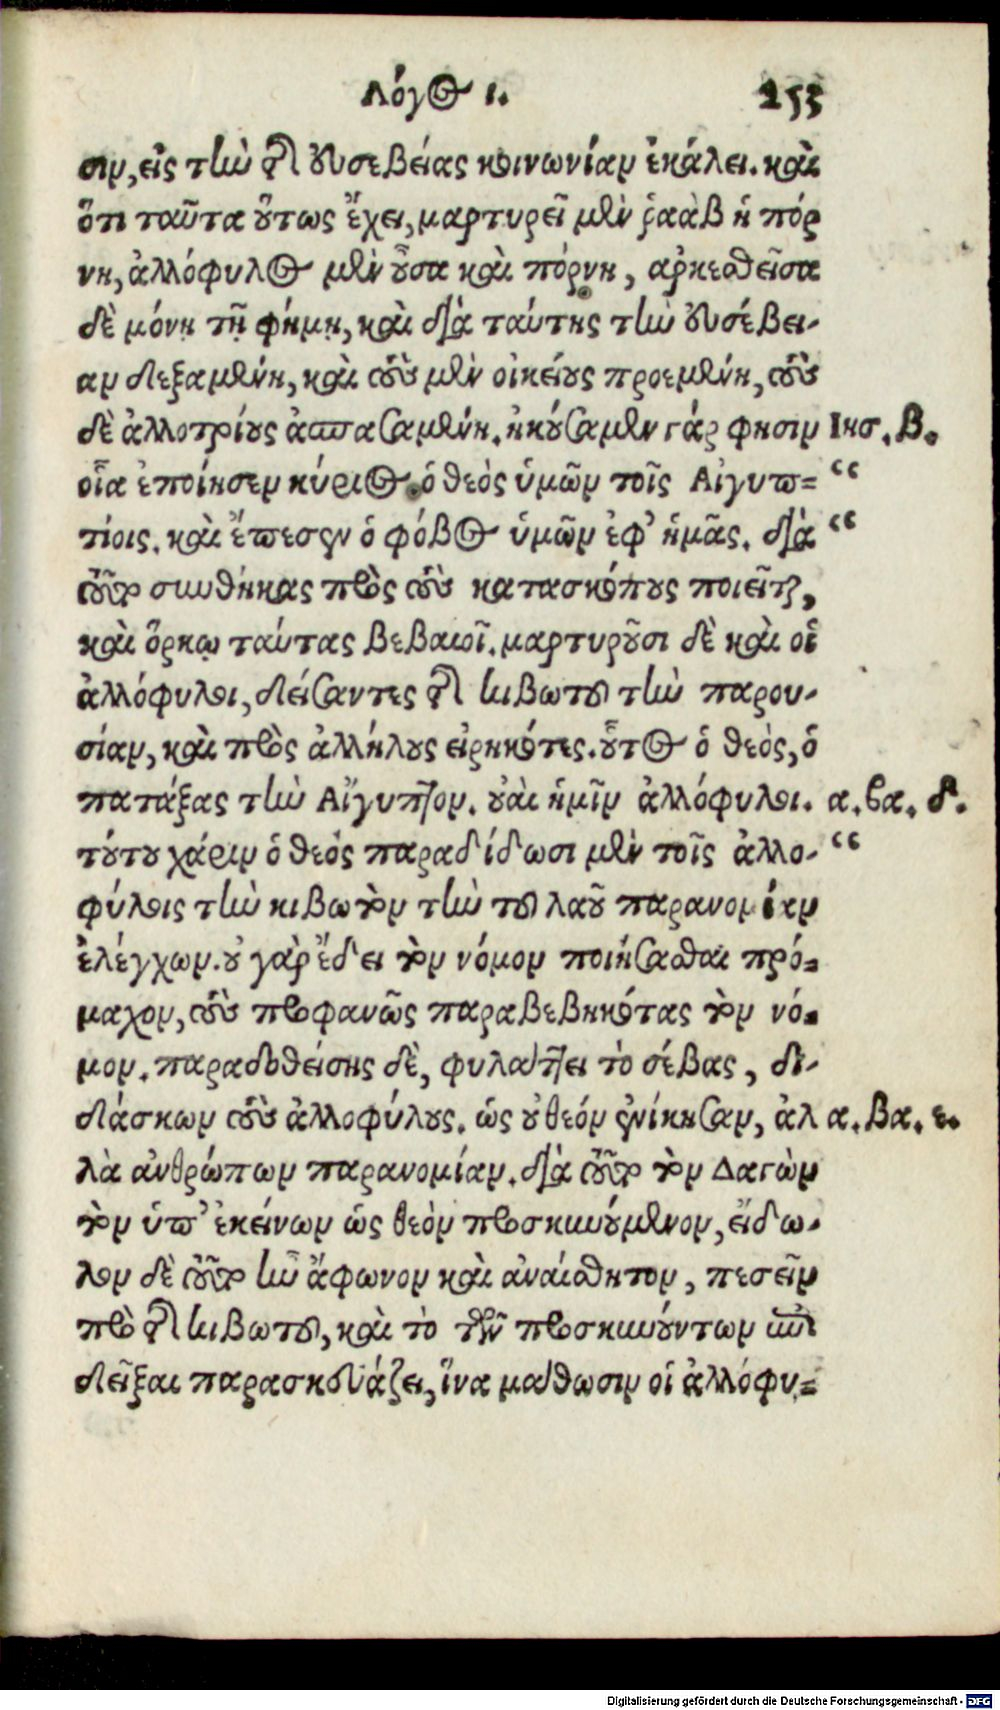 Λόγος ι. 253
σιν, εἰς τὴν τῆς εὐσεβείας κοινωνίαν ἐκάλει. καὶ
ὅτι ταῦτα οὕτως ἔχει, μαρτυρεῖ μὲν ῥαὰβ ἡ πόρ
νη, ἀλλόφυλος μὲν οὖσα καὶ πόρνη, ἀρκεσθεῖσα
δὲ μόνῃ τῇ φήμῃ, καὶ διὰ ταύτης τὴν εὐσέβει-
αν δεξαμένη, καὶ τοὺς μὲν οἰκείους προεμένη, τοὺς
δὲ ἀλλοτρίους ἀσπασαμένη. ἠκούσαμεν γάρ φησιν Ιησ. β.
οἷα ἐποίησεν κύριος ὁ θεὸς ὑμῶν τοῖς Αἰγυπ= “
τίοις. καὶ ἔπεσεν ὁ φόβος ὑμῶν ἐφ’ ἡμᾶς. διὰ “
τοῦτο συνθήκας πρὸς τοὺς κατασκόπους ποιεῖται,
καὶ ὅρκῳ ταύτας βεβαιοῖ. μαρτυροῦσι δὲ καὶ οἱ
ἀλλόφυλοι, δείσαντες τῆς κιβωτοῦ τὴν παρου-
σίαν, καὶ πρὸς ἀλλήλους εἰρηκότες. οὗτος ὁ θεὸς, ὁ
πατάξας τὴν Αἴγυπτον. οὐαι ἡμῖν ἀλλόφυλοι. α. βα. δ.
τούτου χάριν ὁ θεὸς παραδίδωσι μὲν τοῖς ἀλλο- “
φύλοις τὴν κιβωτὸν τὴν τοῦ λαοῦ παρανομίαν
ἐλέγχων. οὐ γὰρ ἔδει τὸν νόμον ποιήσασθαι πρό=
μαχον, τοὺς προφανῶς παραβεβηκότας τὸν νό=
μον. παραδοθείσης δὲ, φυλάττει τὸ σέβας, δι-
δάσκων τοὺς ἀλλοφύλους. ὡς οὐ θεόν ἐνίκησαν, ἀλ α. βα. ε.
λὰ ἀνθρώπων παρανομίαν. διὰ τοῦτο τὸν Δαγὼν
τὸν ὑπ’ ἐκείνων ὡς θεὸν προσκυνούμενον, εἴδω-
λον δὲ τοῦτο ἦν ἄφωνον καὶ ἀναίσθητον, πεσεῖν
πρὸ τῆς κιβωτοῦ, καὶ τὸ τῶν προσκυνούντων
δεῖξαι παρασκευάζει, ἵνα μάθωσιν οἱ ἀλλόφυ=
Digitalisierung gefördert durch die Deutsche Forschungsgemeinschaft - DFG